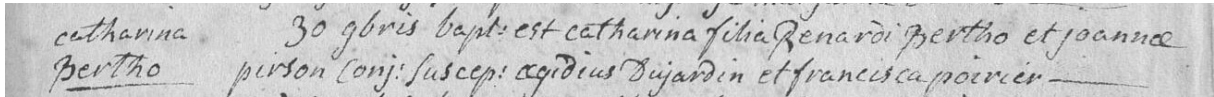 catharina 30 9bris bapt: est catharina filia Renardi Bertho et joannæ
Bertho pirson conj: suscep: ægidius Dujardin et francisca poirier